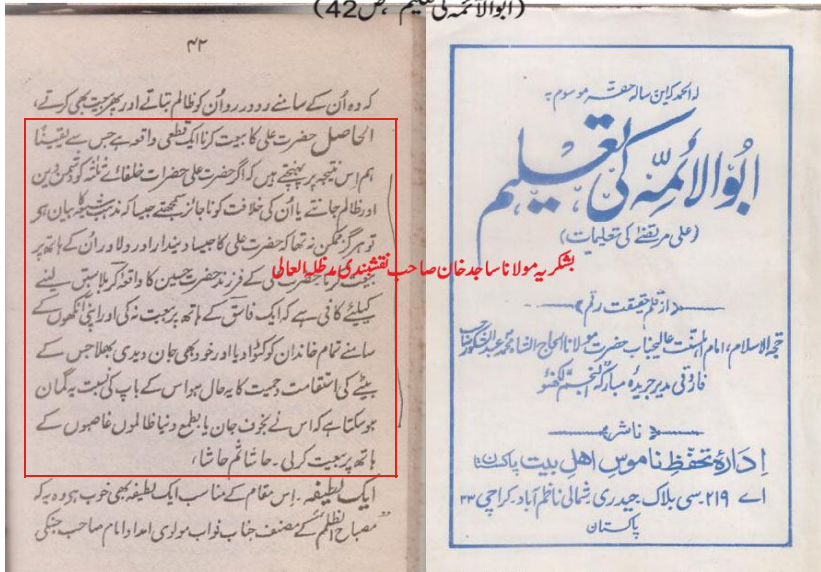 (ابوالائمہ کی تعلیم، ص42)
۴۲
کہ وہ اُن کے سامنے رو در رو اُن کو ظالم بتاتے اور پھر بیعت بھی کرتے،
الحاصل حضرت علی کا بیعت کرنا ایک قطعی واقعہ ہے جس سے یقینًا
ہم اِس نتیجہ پر پہنچتے ہیں کہ اگر حضرت علی حضرات خلفائے ثلٰثہ کو دشمن دین
اور ظالم جانتے یا اُن کی خلافت کو ناجائز سمجھتے جیسا کہ مذہب شیعہ کا بیان ہو
تو ہرگز ممکن نہ تھا کہ حضرت علی کا جیسا دیندار اور دلاور اُن کے ہاتھ پر
بیعت کرتا حضرت علی کے فرزند حضرت حسین کا واقعہ کربلا سبق لینے
کیلئے کافی ہے کہ ایک فاسق کے ہاتھ پر بیعت نہ کی اور اپنی آنکھوں کے
سامنے تمام خاندان کو کٹوا دیا اور خود بھی جان دیدی بھلا جس کے
بیٹے کی استقامت و حمیت کا یہ حال ہو اس کے باپ کی نسبت یہ گمان
ہو سکتا ہے کہ اس نے بخوف جان یا بطمع دنیا ظالموں غاصبوں کے
ہاتھ پر بیعت کر لی۔ حاشا ثم حاشا،
ایک لطیفہ۔ اِس مقام کے مناسب ایک لطیفہ بھی خوب ہی وہ یہ کہ
مصباح الظلم کے مصنف جناب نواب مولوی امداد امام صاحب جنکی
بشکریہ مولانا ساجد خان صاحب نقشبندی مدظلہ العالی
للہ الحمد کہ این رسالہ حقہ موسوم بہ
ابُو الأئمّہ کی تعلیم
(علی مرتضٰے کی تعلیمات)
از قلم حقیقت رقم
حجۃ الاسلام، امام اہلسنت عالیجناب حضرت مولانا الحاج الشاہ محمد عبدالشکور صاحب
فاروقی مدیر جریدۂ مبارکہ النجم لکھنؤ
ناشر
اِدارۂ تحفظِ ناموسِ اھلِ بیت پاکستان
اے ۲۱۹۔ سی بلاک۔ حیدری۔ شمالی ناظم آباد۔ کراچی ۳۳
پاکستان